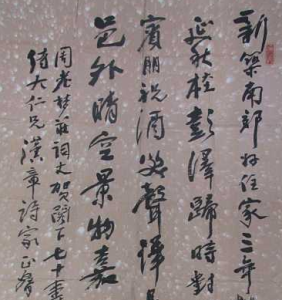 新築南郊好住家三年
延秋桂彭澤歸時對
賓朋祝酒笑聲譁
邑外晴空景物嘉
周老梦莊詞丈賀閣下七十壽
倚大仁兄漢章詩家正